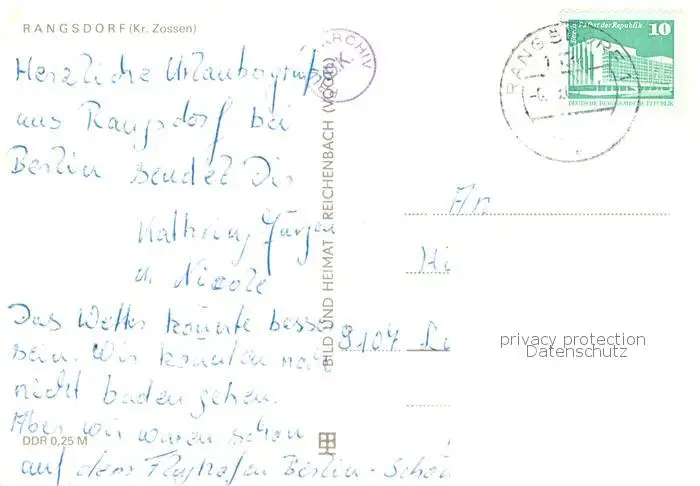 RANGSDORF (Kr. Zossen)
Herzliche Urlaubsgrüße
aus Rangsdorf bei
Berlin sendet Dir
Kathrin, Jürgen
u. Nicole
Das Wetter könnte besser
sein. Wir konnten noch
nicht baden gehen.
Aber wir waren schon
auf dem Flughafen Berlin-Schön
DDR 0,25 M
BILD UND HEIMAT REICHENBACH (VOGTL)
ARCHIV
Palast der Republik
10
DEUTSCHE DEMOKRATISCHE REPUBLIK
RANGSDORF 1
An
9107
privacy protection
Datenschutz